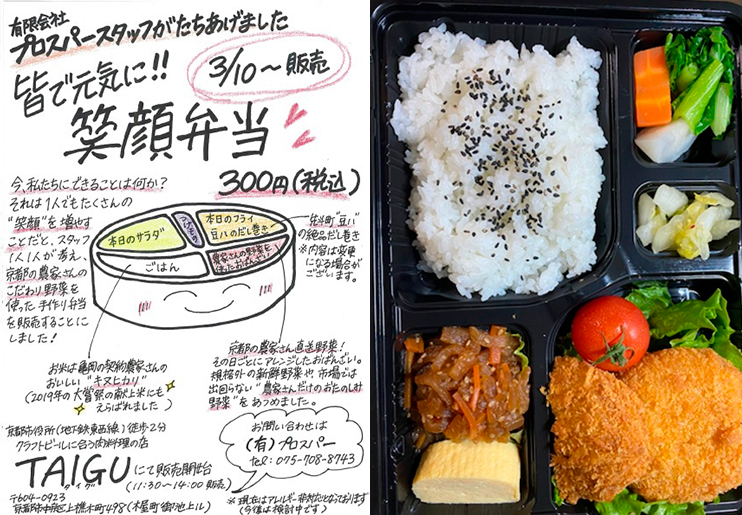 有限会社
プロスパースタッフがたちあげました
皆で元気に!!
3/10〜販売
笑顔弁当
300円(税込)
今、私たちにできることは何か?
それは1人でもたくさんの
"笑顔"を増やす
ことだと、スタッフ
1人1人が考え、
京都の農家さんの
こだわり野菜を
使った手作り弁当
を販売することに
しました!
本日のサラダ
つけもの
本日のフライ
豆八のだし巻き
ごはん
農家さんの野菜を
使ったおばんざい
"豆八"
の絶品だし巻き
※内容は変更
になる場合が
ございます。
お米は亀岡の契約農家さんの
おいしい"キヌヒカリ"
(2019年の大嘗祭の献上米にも
えらばれました)
京都の農家さん直送野菜!
その日ごとにアレンジしたおばんざい。
規格外の新鮮野菜や市場では
出回らない"農家さんだけのおたのしみ
野菜"をあつめました。
京都市役所(地下鉄東西線)徒歩2分
クラフトビールに合う肉料理の店
TAIGUにて販売開始
タイグ
(11:30〜14:00販売)
〒604-0923
京都市中京区上樵木町498(木屋町御池上ル)
お問い合わせは
(有)プロスパー
tel:075-708-8743
※現在はアレルギー非対応となっております
(今後は検討中です)